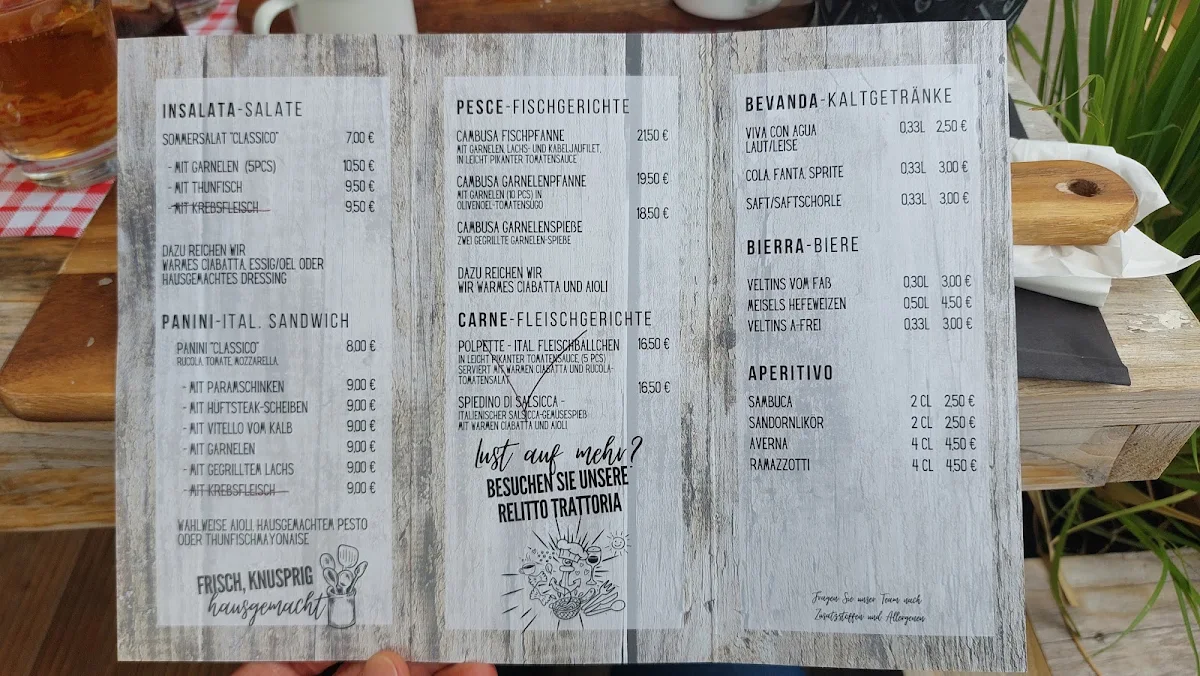 INSALATA-SALATE
SOMMERSALAT "CLASSICO" 7,00 €
- MIT GARNELEN (5PCS) 10,50 €
- MIT THUNFISCH 9,50 €
- MIT KREBSFLEISCH 9,50 €
DAZU REICHEN WIR
WARMES CIABATTA, ESSIG/OEL ODER
HAUSGEMACHTES DRESSING
PANINI-ITAL. SANDWICH
PANINI "CLASSICO" 8,00 €
RUCOLA, TOMATE, MOZZARELLA,
- MIT PARAMSCHINKEN 9,00 €
- MIT HÜFTSTEAK-SCHEIBEN 9,00 €
- MIT VITELLO VOM KALB 9,00 €
- MIT GARNELEN 9,00 €
- MIT GEGRILLTEM LACHS 9,00 €
- MIT KREBSFLEISCH 9,00 €
WAHLWEISE AIOLI, HAUSGEMACHTEM PESTO
ODER THUNFISCHMAYONAISE
FRISCH, KNUSPRIG
hausgemacht
PESCE-FISCHGERICHTE
CAMBUSA FISCHPFANNE 21,50 €
MIT GARNELEN, LACHS- UND KABELJAUFILET,
IN LEICHT PIKANTER TOMATENSAUCE
CAMBUSA GARNELENPFANNE 19,50 €
MIT GARNELEN (10 PCS) IN
OLIVENOEL-TOMATENSUGO
18,50 €
CAMBUSA GARNELENSPIEßE
ZWEI GEGRILLTE GARNELEN-SPIEßE
DAZU REICHEN WIR
WIR WARMES CIABATTA UND AIOLI
CARNE-FLEISCHGERICHTE
POLPETTE - ITAL. FLEISCHBÄLLCHEN 16,50 €
IN LEICHT PIKANTER TOMATENSAUCE, (5 PCS)
SERVIERT MIT WARMEN CIABATTA UND RUCOLA-
TOMATENSALAT
16,50 €
SPIEDINO DI SALSICCA -
ITALIENISCHER SALSICCA-GEMÜSESPIEß
MIT WARMEN CIABATTA UND AIOLI
Lust auf mehr?
BESUCHEN SIE UNSERE
RELITTO TRATTORIA
BEVANDA-KALTGETRÄNKE
VIVA CON AGUA 0,33L 2,50 €
LAUT/LEISE
COLA, FANTA, SPRITE 0,33L 3,00 €
SAFT/SAFTSCHORLE 0,33L 3,00 €
BIERRA-BIERE
VELTINS VOM FAß 0,30L 3,00 €
MEISELS HEFEWEIZEN 0,50L 4,50 €
VELTINS A-FREI 0,33L 3,00 €
APERITIVO
SAMBUCA 2 CL 2,50 €
SANDORNLIKÖR 2 CL 2,50 €
AVERNA 4 CL 4,50 €
RAMAZZOTTI 4 CL 4,50 €
Fragen Sie unser Team nach
Zusatzstoffen und Allergenen